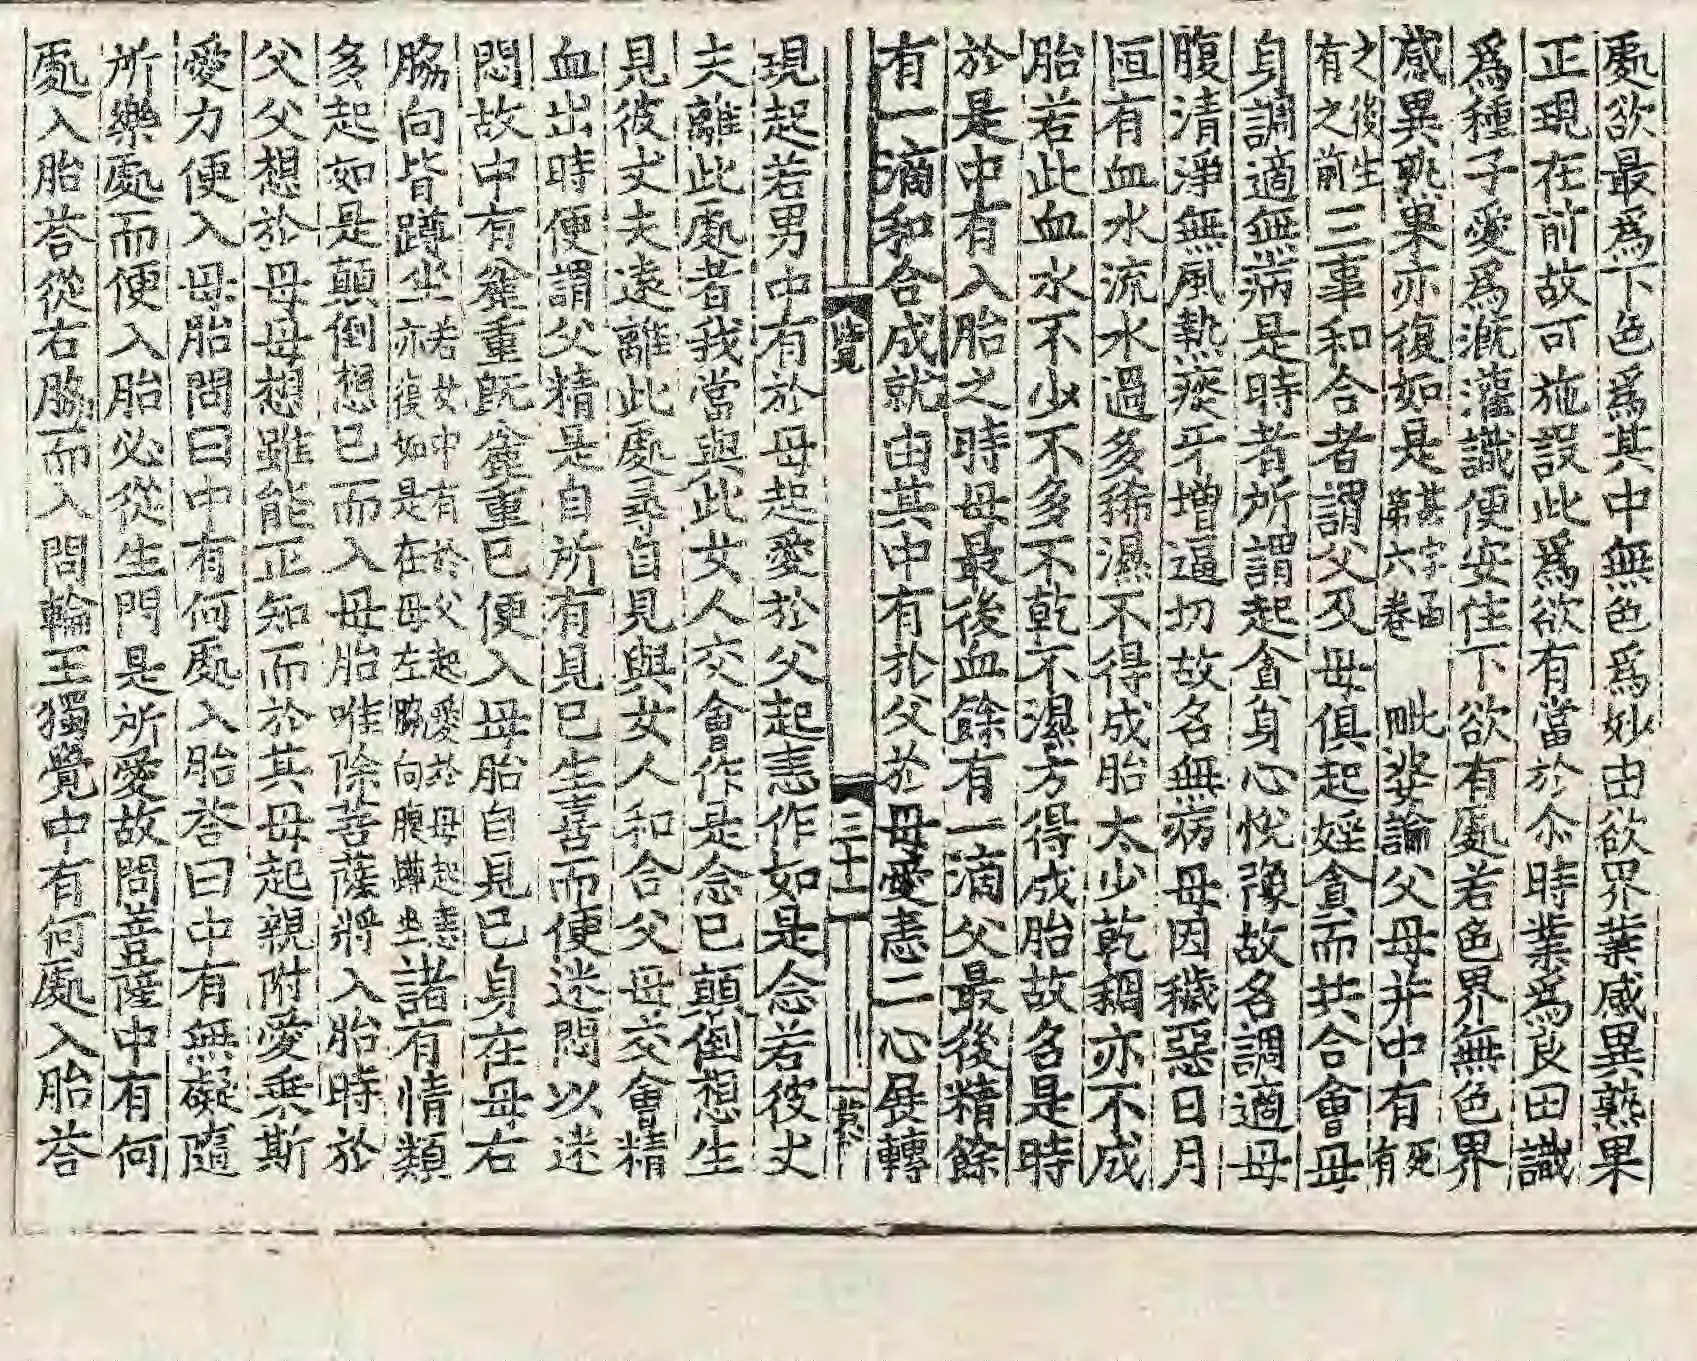 處欲最爲下色爲其中無色爲妙由欲界業感異熟果
正現在前故可施設此爲欲有當於尒時業爲良田識
爲種子愛爲溉灌識便安住下欲有處若色界無色界
感異熟果亦復如是甚字函第六卷 毗婆論父母并中有死有
之後生有之前三事和合者謂父及母俱起婬貪而共合會母
身調適無病是時者所謂起貪身心悅豫故名調適母
腹清淨無風熱痰互增逼切故名無病母因穢惡日月
恒有血水流水過多稀濕不得成胎太少乾稠亦不成
胎若此血水不少不多不乾不濕方得成胎故名是時
於是中有入胎之時母最後血餘有一滴父最後精餘
有一滴和合成就由其中有於父於母愛恚二心展轉
覽 三十一
現起若男中有於母起愛於父起恚作如是念若彼丈
夫離此處者我當與此女人交會作是念已顛倒想生
見彼丈夫遠離此處尋自見與女人和合父母交會精
血出時便謂父精是自所有見已生喜而便迷悶以迷
悶故中有麁重既麁重已便入母胎自見已身在母右
脇向背蹲坐若女中有於父起愛於母起恚亦復如是在母左脇向腹蹲坐諸有情類
多起如是顛倒想已而入母胎唯除菩薩將入胎時於
父父想於母母想雖能正知而於其母起親附愛乗斯
愛力便入母胎問曰中有何處入胎荅曰中有無礙隨
所樂處而便入胎必從生門是所愛故問菩薩中有何
處入胎荅從右脇而入問輪王獨覺中有何處入胎荅